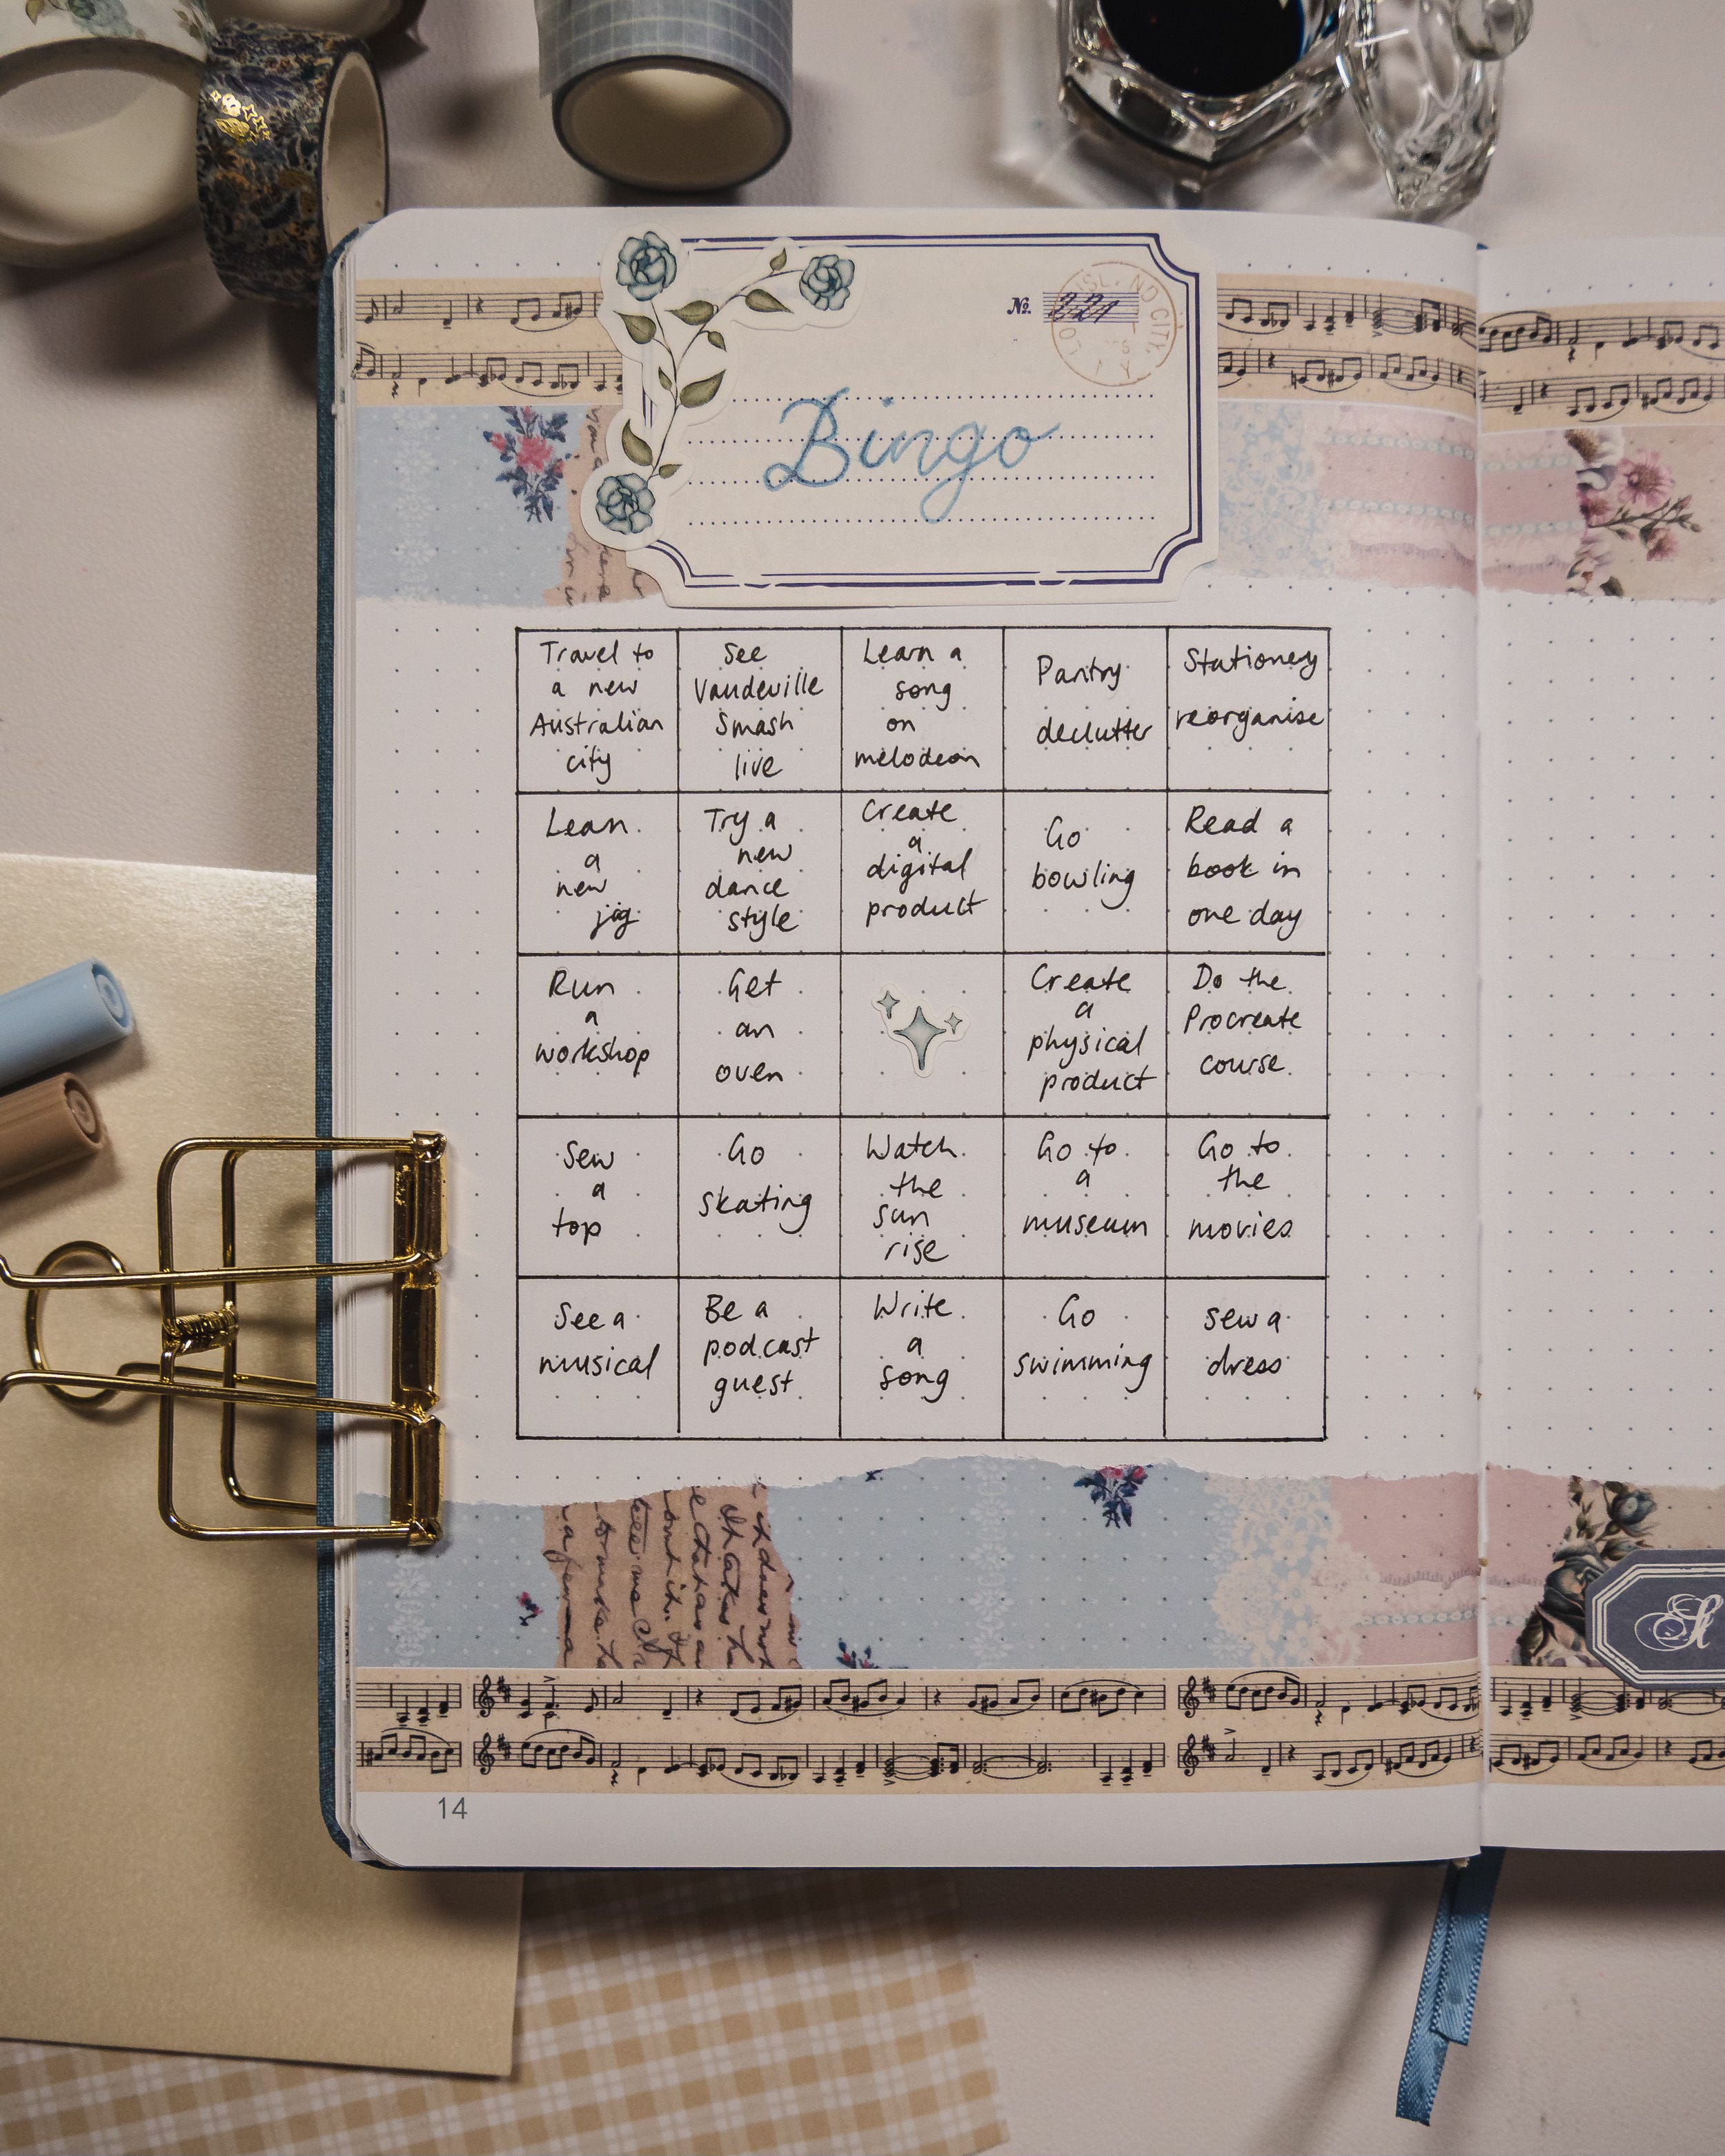 No. 221
Bingo
Travel to
a new
Australian
city
See
Vaudeville
Smash
live
Learn a
song
on
melodeon
Pantry
declutter
Stationery
reorganise
Lean
a
new
jig
Try a
new
dance
style
Create
a
digital
product
Go
bowling
Read a
book in
one day
Run
a
workshop
Get
an
oven
Create
a
physical
product
Do the
Procreate
course
Sew
a
top
Go
skating
Watch
the
sun
rise
Go to
a
museum
Go to
the
movies
See a
musical
Be a
podcast
guest
Write
a
song
Go
swimming
sew a
dress
14